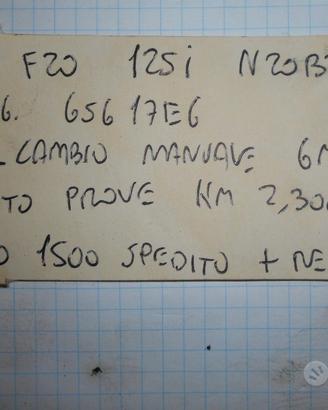 F20 125i N20B
6. 65617E6
CAMBIO MANUALE 6M
TO PROVE KM 2,30
O 1500 SPEDITO + NE